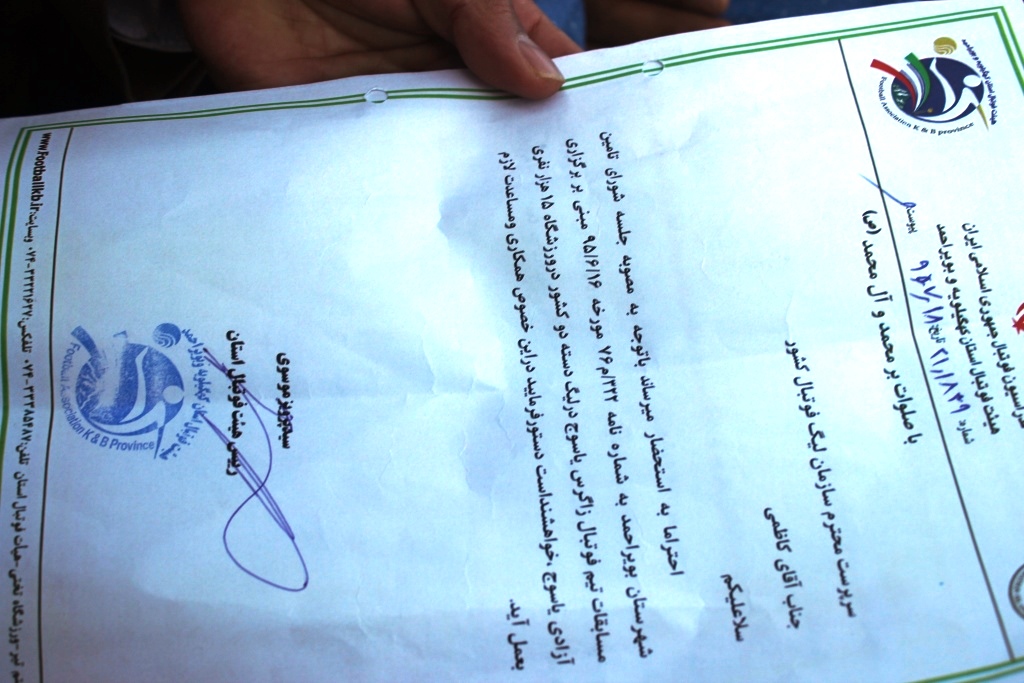 هیئت فوتبال استان کهگیلویه و بویراحمد
Football Association K & B province
فوتبال جمهوری اسلامی ایران
هیئت فوتبال استان کهگیلویه و بویراحمد
شماره ۲۱/۱۸۳۹ تاریخ ۹۵/۷/۱۸
پیوست
با صلوات بر محمد و آل محمد (ص)
سرپرست محترم سازمان لیگ فوتبال کشور
جناب آقای کاظمی
سلاعلیکم
احتراما به استحضار میرساند باتوجه به مصوبه جلسه شورای تامین
شهرستان بویراحمد به شماره نامه ۷۶م/۳۲۲ مورخه ۹۵/۶/۱۶ مبنی بر برگزاری
مسابقات تیم فوتبال زاگرس یاسوج درلیگ دسته دو کشور درورزشگاه ۱۵ هزار نفری
آزادی یاسوج ،خواهشنداست دستورفرمایید دراین خصوص همکاری ومساعدت لازم
بعمل آید.
سیدپرویز موسوی
رییس هیئت فوتبال استان
هیئت فوتبال استان کهگیلویه وبویراحمد
Football Association K & B Province
ورزشگاه تختی-هیات فوتبال استان تلفن:۰۷۴-۳۳۳۳۸۵۴۸۷ تلفکس:۰۷۴-۳۳۳۲۱۶۲۷ وبسایت:www.Footballkb.ir